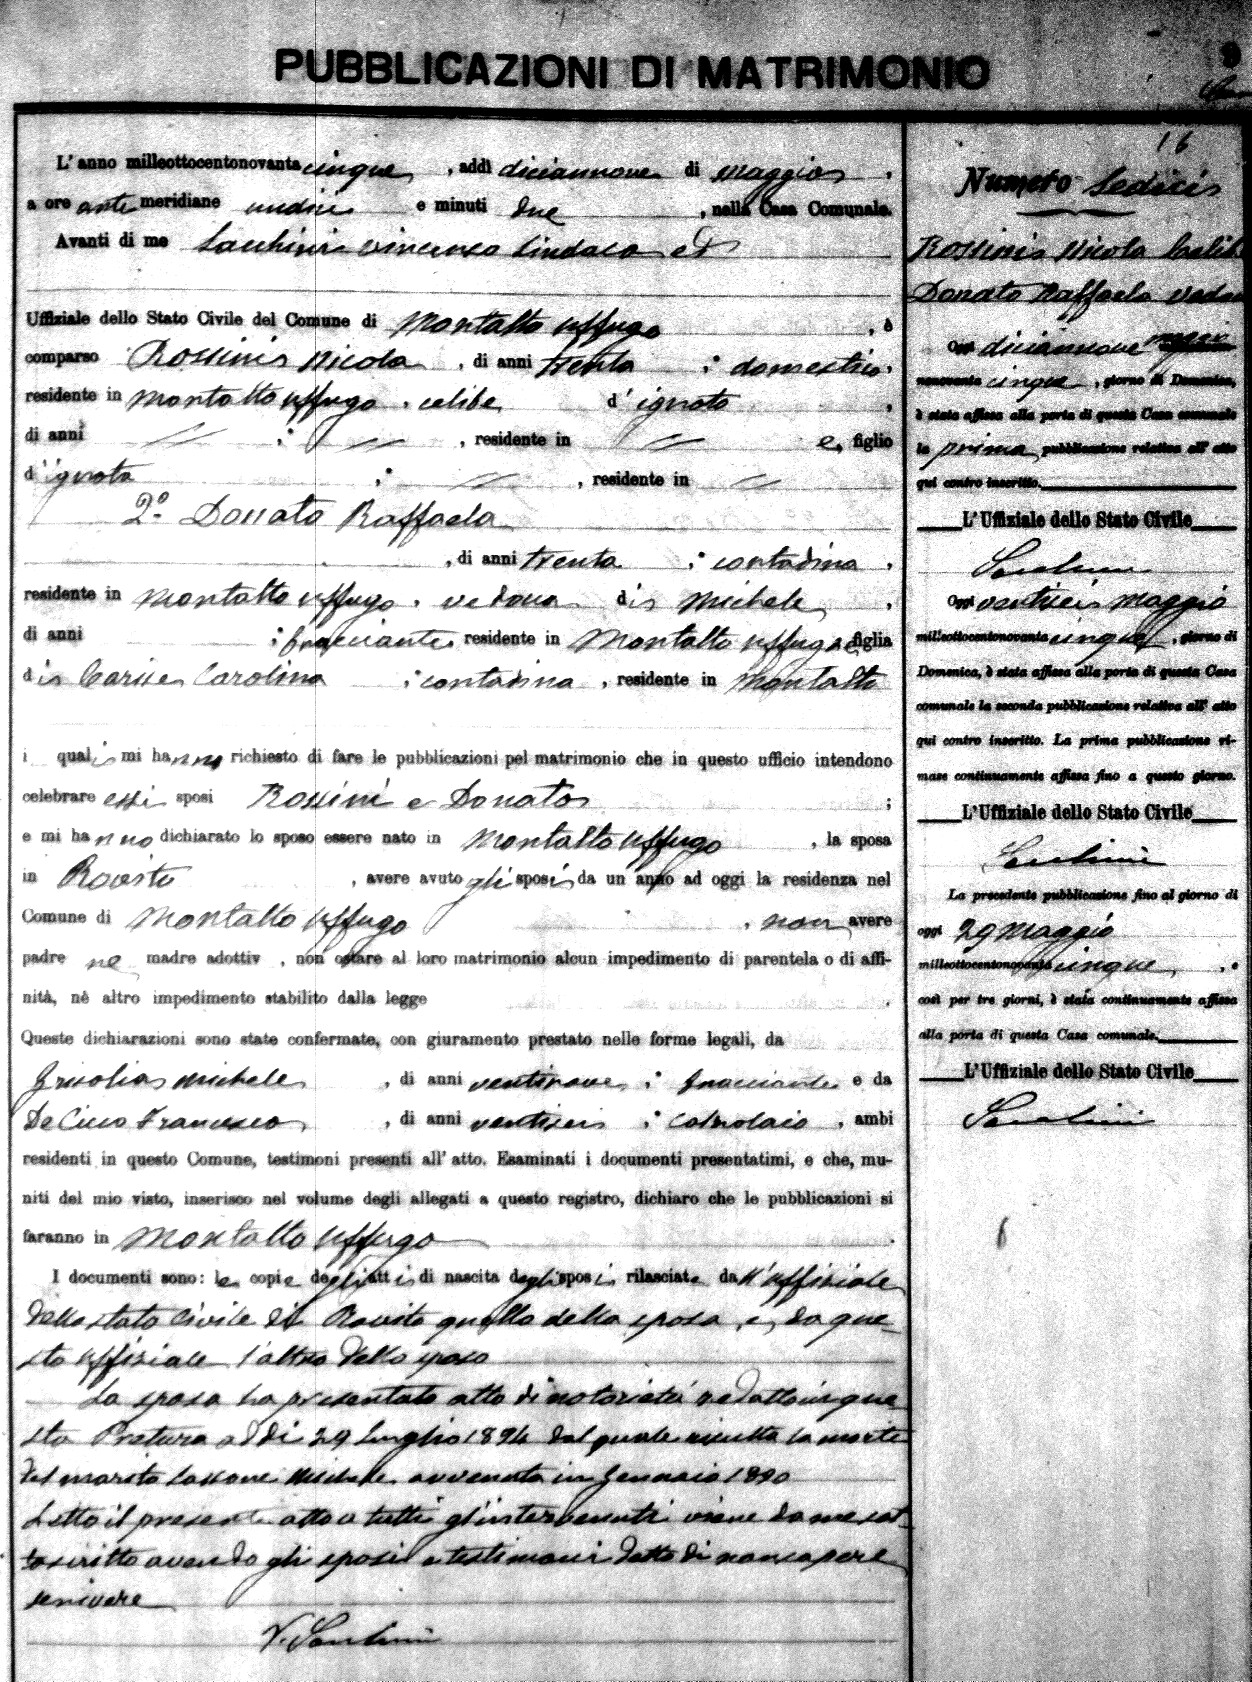 PUBBLICAZIONI DI MATRIMONIO
9
L'anno milleottocentonovantacinque, addì diciannove di maggio,
a ore anti meridiane undici e minuti due, nella Casa Comunale.
Avanti di me Sacchini Vincenzo Sindaco ed
Uffiziale dello Stato Civile del Comune di Montalto Uffugo, è
comparso Rossini Nicola, di anni trenta; domestico,
residente in Montalto Uffugo, celibe d'ignoto,
di anni // ; //, residente in // e, figlio
d'ignota ; //, residente in //
2º Donato Raffaela
, di anni trenta ; contadina,
residente in Montalto Uffugo, vedova di Michele,
di anni ; bracciante, residente in Montalto Uffugo e figlia
di Carolina ; contadina, residente in Montalto
i quali mi hanno richiesto di fare le pubblicazioni pel matrimonio che in questo ufficio intendono
celebrare essi sposi Rossini e Donato ;
e mi hanno dichiarato lo sposo essere nato in Montalto Uffugo, la sposa
in Rovito, avere avuto gli sposi da un anno ad oggi la residenza nel
Comune di Montalto Uffugo, non avere
padre nè madre adottiv , non ostare al loro matrimonio alcun impedimento di parentela o di affi-
nità, nè altro impedimento stabilito dalla legge.
Queste dichiarazioni sono state confermate, con giuramento prestato nelle forme legali, da
Grisolia Michele, di anni ventinove ; bracciante e da
De Cicco Francesco, di anni ventisei ; calzolaio, ambi
residenti in questo Comune, testimoni presenti all'atto. Esaminati i documenti presentatimi, e che, mu-
niti del mio visto, inserisco nel volume degli allegati a questo registro, dichiaro che le pubblicazioni si
faranno in Montalto Uffugo.
I documenti sono: le copie degli atti di nascita degli sposi rilasciate dall'uffiziale
dello stato Civile di Rovito quello della sposa, e, da que-
sto uffiziale l'altro dello sposo
La sposa ha presentato atto di notorietà redatto in que
sta Pretura addì 29 Luglio 1894 dal quale risulta la morte
del marito Michele avvenuta in Gennaio 1890
Letto il presente atto a tutti gl'intervenuti viene da me sot-
toscritto avendo gli sposi e testimoni detto di non sapere
scrivere
V. Sacchini
16
Numero Sedici
Rossini Nicola Celibe
Donato Raffaela vedova
Oggi diciannove maggio
novanta cinque, giorno di Domenica,
è stata affissa alla porta di questa Casa comunale
la prima pubblicazione relativa all'atto
qui contro inscritto.
L'Uffiziale dello Stato Civile
Sacchini
Oggi ventisei maggio
milleottocentonovanta cinque, giorno di
Domenica, è stata affissa alla porta di questa Casa
comunale la seconda pubblicazione relativa all'atto
qui contro inscritto. La prima pubblicazione ri-
mase continuamente affissa fino a questo giorno.
L'Uffiziale dello Stato Civile
Sacchini
La precedente pubblicazione fino al giorno di
oggi 29 maggio
milleottocentonovanta cinque, e
così per tre giorni, è stata continuamente affissa
alla porta di questa Casa comunale.
L'Uffiziale dello Stato Civile
Sacchini